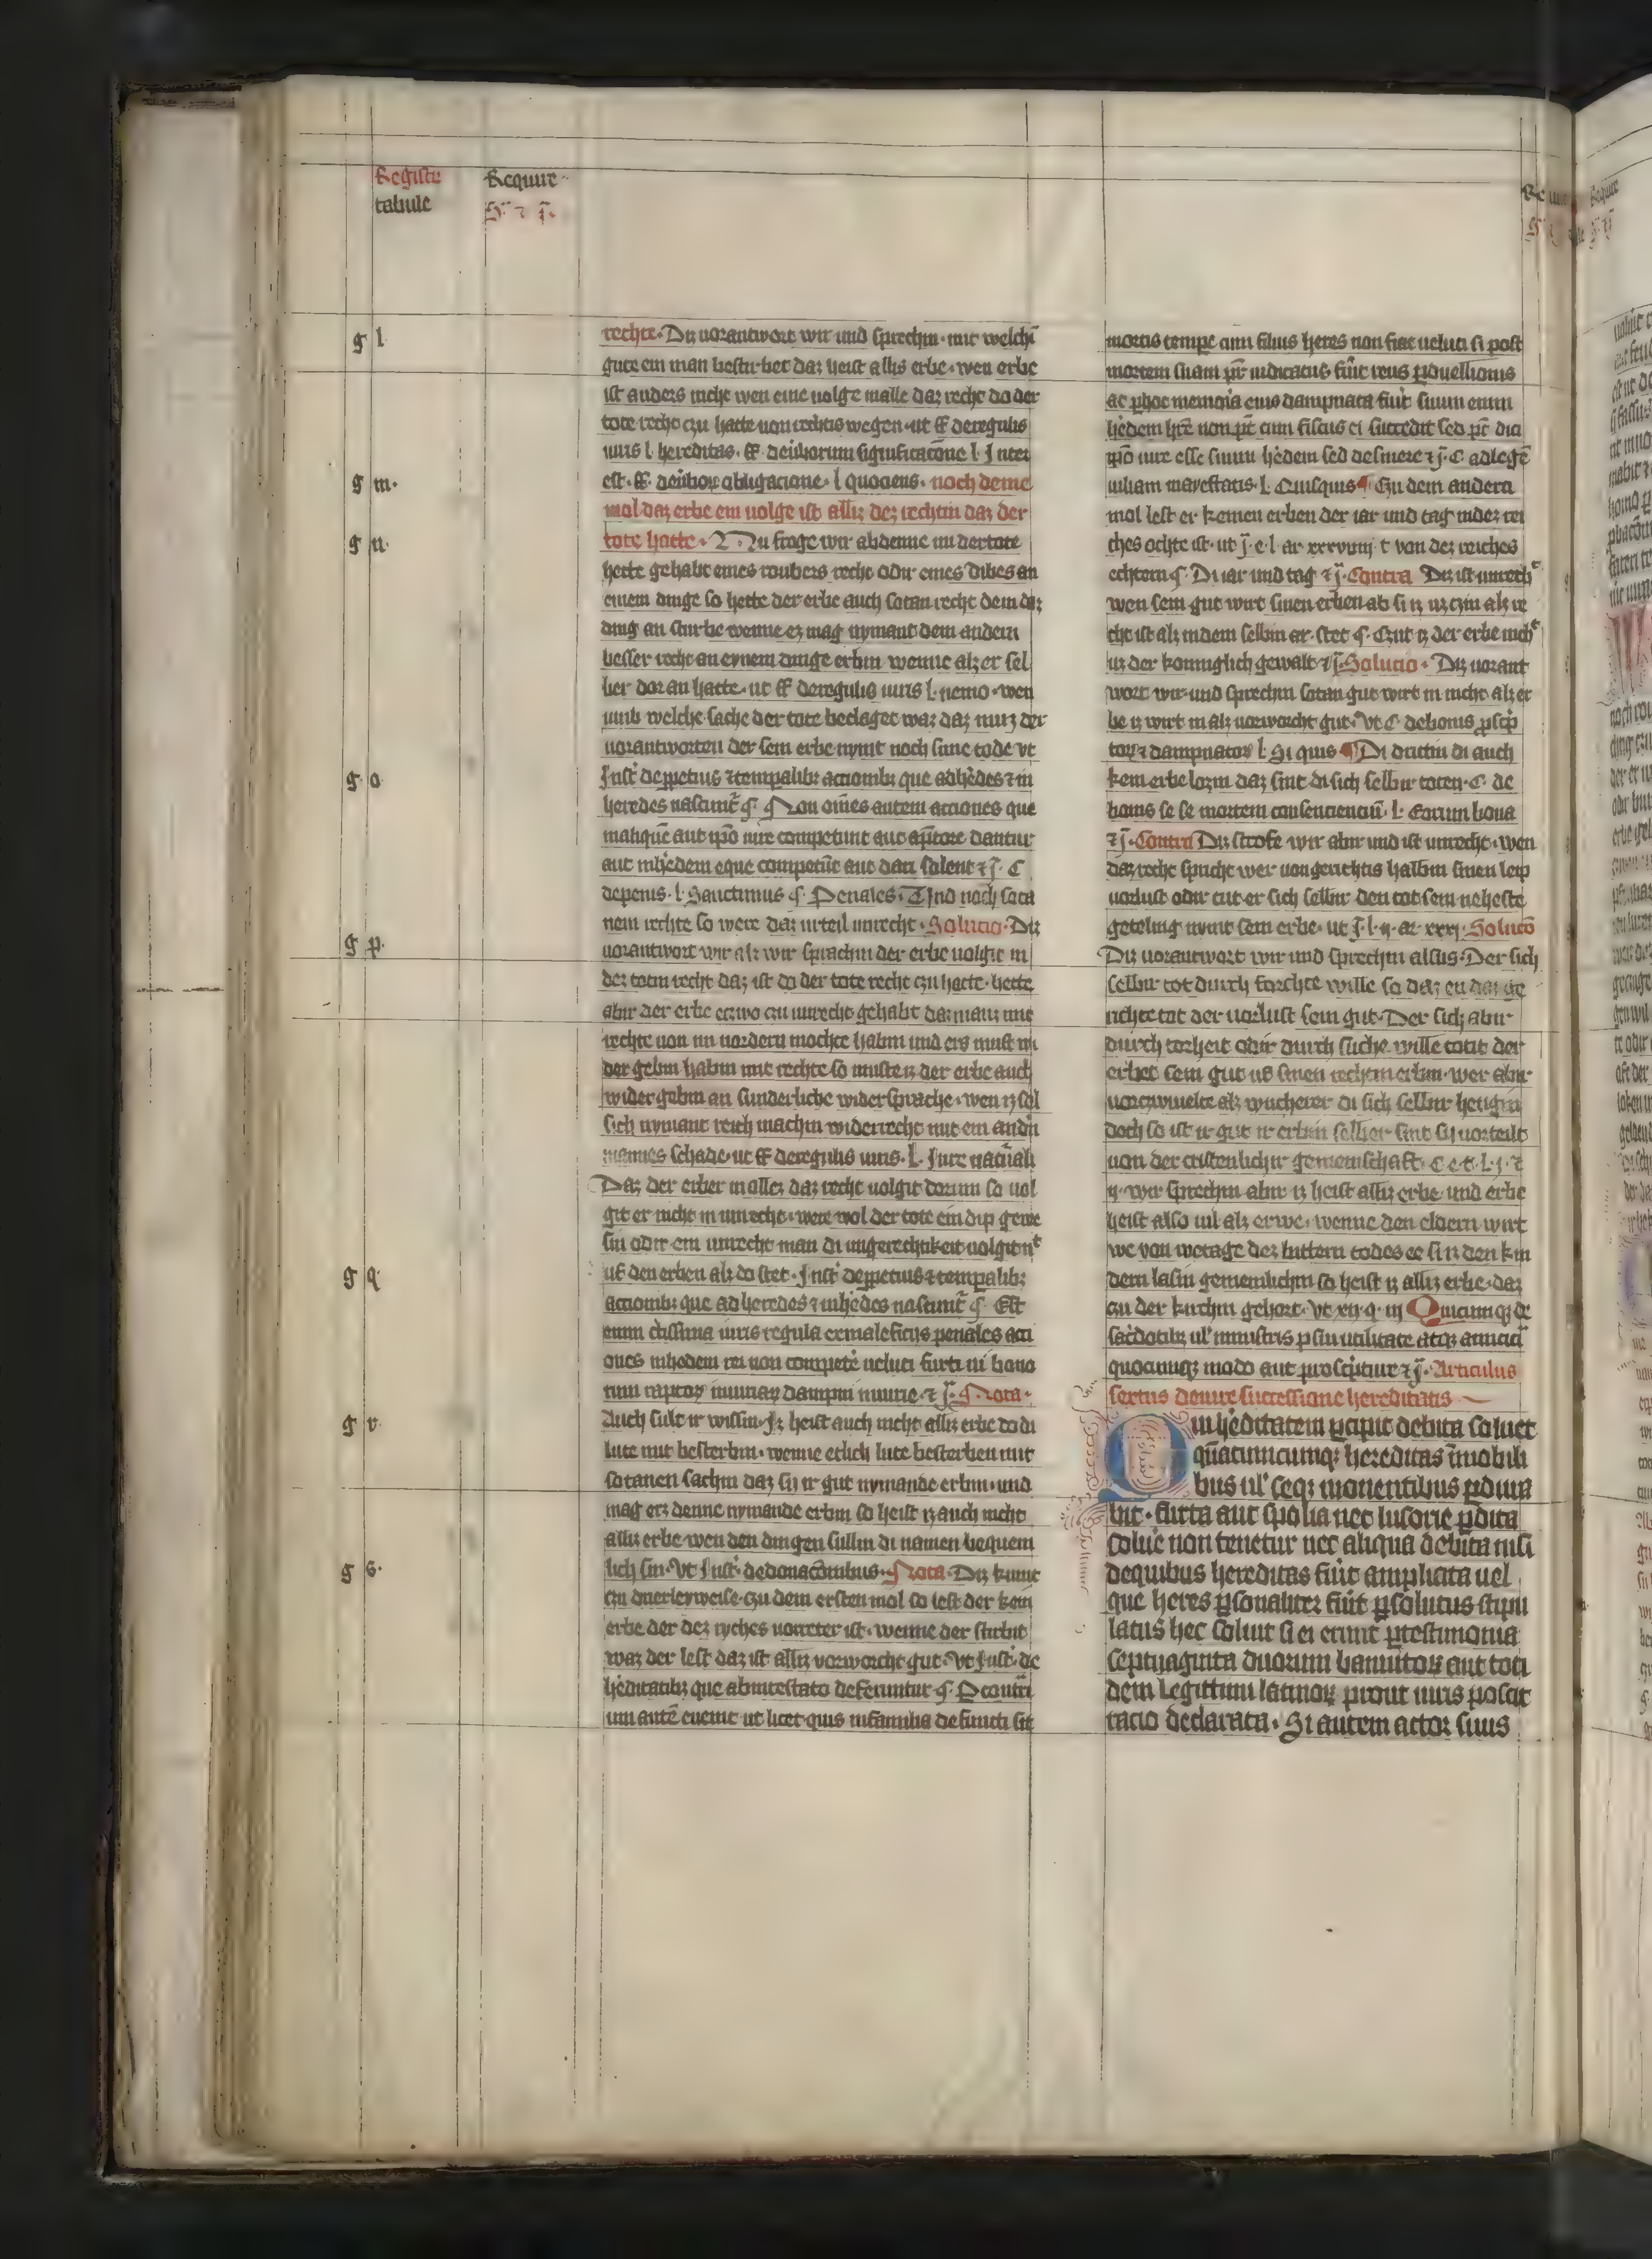 Registr
tabule
Requir
g l
g m.
g n.
g o
g p.
g q.
g r.
g s.
rechte. Diz uorantwort wir und sprechin. mit welchī
gute ein man bestirbet daz heist alliz erbe. wen erbe
ist anders nicht wen eine uolge in alle daz recht do der
tote recht czu hatte uon rechtis wegen. ut ff. de regulis
iuris l. hereditas. ff. de ũborum significacōne l. Inter
est. ff. de ũboꝝ obligacione. l. quociens. noch deme
mol daz erbe ein uolge ist alliz dez rechtin daz der
tote hatte. Nu frage wir ab denne nu der tote
hette gehabt eines roubers recht odir eines dibes an
einem dinge so hette der erbe auch sotan recht dem daz
ding an sturbe wenne ez mag nymant dem andern
besser recht an eynem dinge erbin wenne alz er sel
ber dor an hatte. ut ff de regulis iuris l. nemo. wen
umb welche sache der tote beclaget waz daz muz der
uorantworten der sein erbe nymt noch sime tode vt
Inst̄ de ꝑpetuis ⁊ temꝑalibꝫ actionibꝫ que ad h̄edes ⁊ in
heredes nascunt̄ § Non om̄es autem acciones que
in aliquē aut ip̄o iure competunt aut a p̄tore dantur
aut in h̄edem eque competūt aut dari solent ⁊ j. C
de penis. l. Sanctimus § Penales. Und noch sota
nem rechte so were daz urteil unrecht. Solucio. Diz
uorantwort wir alz wir sprachin der erbe uolgit in
dez totin recht daz ist do der tote recht czu hatte. hette
abir der erbe eczwo czu unrecht gehabt daz man mit
rechte uon im uordern mochte habin und ers must wi
der gebin habin mit rechte so muste iz der erbe auch
wider gebin an sunderliche widersprache. wen iz sol
sich nymant reich machin widerrecht mit ein andn̄
mannes schade. ut ff de regulis iuris. l. Iure nat̄ali
Daz der erber in allez daz recht uolgit dorum so uol
git er nicht in unrecht. were wol der tote ein dip gewe
sin odir ein unrecht man di ungerechtikeit uolgit nt
uf den erben alz do stet. Inst̄ de ꝑpetuis ⁊ temꝑalibꝫ
actionibꝫ que ad heredes ⁊ in h̄edes nascunt̄ §. Est
enim c̄tissima iuris regula ex maleficiis penales acti
ones in h̄edem rei non competē ueluti furti ui bono
rum raptoꝝ iniuriaꝝ dampni iniurie. ⁊ j. Nota.
Auch sult ir wissin. Iz heist auch nicht alliz erbe do di
lute mit besterbin. wenne etlich lute besterben mit
sotanen sachin daz sy ir gut nymande erbin. und
mag erz denne nymande erbin so heist iz auch nicht
alliz erbe wen den dingen sullin di namen bequem
lich sin. Vt Inst̄. de donacōnibus. Nota. Diz kumt
czu drierleyweise. czu dem ersten mol so lest der kein
erbe der dez ryches uorreter ist. wenne der stirbit
waz der lest daz ist alliz vorworcht gut. Vt Inst̄. de
h̄editatibꝫ que ab intestato deferuntur §. Ꝑ contrā
um autē euenit ut licet quis in familia defuncti sit
mortis tempē cum filius heres non fiat ueluti si post
mortem suam pr̄ iudicatus fūit reus ꝑduellionis
ac ꝑ hoc memoīa eius dampnata fuīt suum enim
h̄edem hr̄e non pt̄ cum fiscus ei succedit sed pt̄ dici
ip̄o iure esse suum h̄edem sed desinere ⁊ j. C. ad legē
iuliam mayestatis. l. Quisquis ¶ Czu dem andern
mol lest er keinen erben der iar und tag in dez rei
ches ochte ist. ut j. e. l. ar xxxviiij t von dez reiches
echtern §. Di iar und tag ⁊ j. Contra Diz ist unrecht
wen sein gut wirt sinen erben ab si iz uz czin alz re
cht ist alz in dem selbin ar. stet §. Czut iz der erbe nicht
uz der koniglich gewalt ⁊ j. Solucio. Diz uorant
wort wir. und sprechin sotan gut wirt in nicht alz er
be iz wirt in alz uorworcht gut. Vt C. de bonis ꝓscp̄
toꝝ ⁊ dampnatoꝝ l. Si quis ¶ Di drittin di auch
kein erbe lozin daz sint di sich selbir toten. C. de
bonis se se mortem consenciencium̄. l. Eorum bona
⁊ j. Contra Diz strofe wir abir und ist unrecht. wen
daz recht spricht wer uon gerichtis halbin sinen leip
uorlust odir tut er sich selbir den tot sein neheste
geteling nymt sein erbe. ut j. l. ij. ar. xxxj. Solucō
Diz uorantwort wir und sprechin alsus. Der sich
selbir tot durch forchte wille so daz en daz ge
richte tot der uorlust sein gut. Der sich abir
durch torheit odir durch suche wille totit der
erbet sein gut uf sinen rechtin erbin. wer abir
uorczwiuelt alz wucherer di sich selbir hengin
doch so ist ir gut ir erbin selber sint sy uorteilt
uon der cristenlichir gemeinschaft. C. e. t. l. j. ⁊
ij. wir sprechin abir iz heist alliz erbe und erbe
heist also uil alz erwe. wenne den eldern wirt
we von wetage dez bittern todes ee si iz den kin
dern lasin gemeinlichin so heist iz alliz erbe. daz
czu der kirchin gehort. Vt xij. q. iij Quicunqꝫ de
sac̄dotibꝫ ul' ministris ꝑ sui utilitate atqꝫ amicici
quocunqꝫ modo aut proscp̄tiur ⁊ j. Articulus
sextus de iure successione hereditatis
Qui h̄editatem ꝑcipit debita soluet
q̄ntumcumqꝫ hereditas ī mobili
bus ul' seqꝫ mouentibus ꝑdura
bit. furta aut spolia nec lusorie ꝑdita
soluē non tenetur nec aliqua debita nisi
de quibus hereditas fuīt ampliata uel
que heres ꝑsonaliter fuīt ꝑsolutus stipu
latus hec soluit si ei erunt ꝑ testimonia
septuaginta duorum bannitoꝝ aut toti
dem legittimi latinoꝝ prout iuris poscit
racio declarata. Si autem actor suus